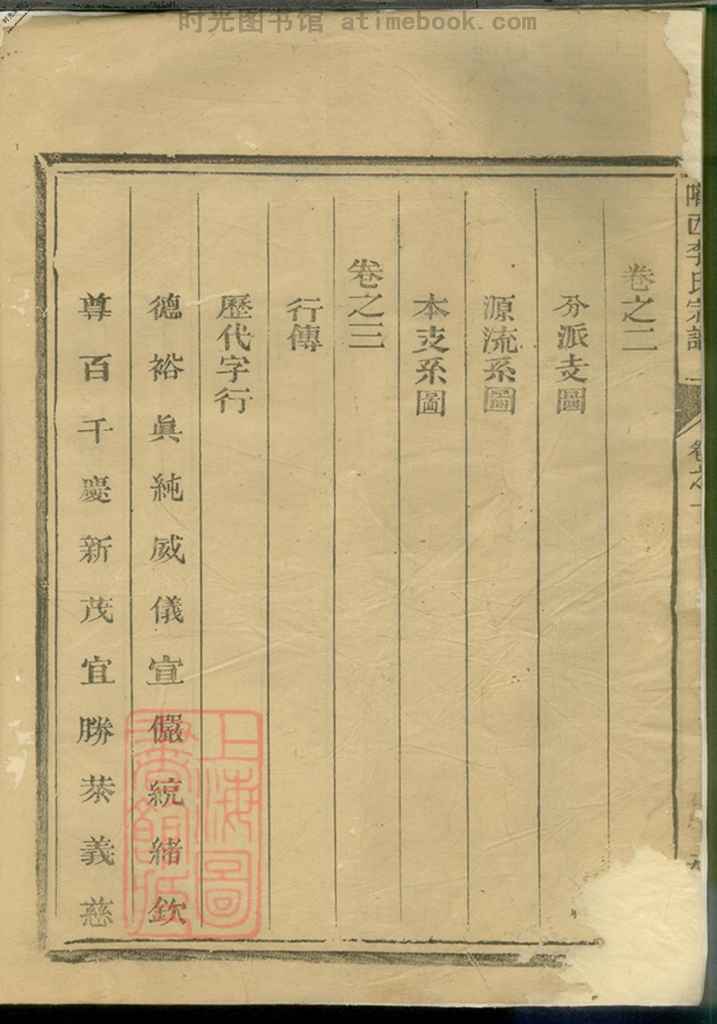 时光图书馆 atimebook.com
隴西李氏宗譜
卷之一
卷之二
分派支圖
源流系圖
本支系圖
卷之三
行傳
歷代字行
德裕眞純威儀宣儼統緒欽
尊百千慶新茂宜勝恭義慈
上海圖書館藏